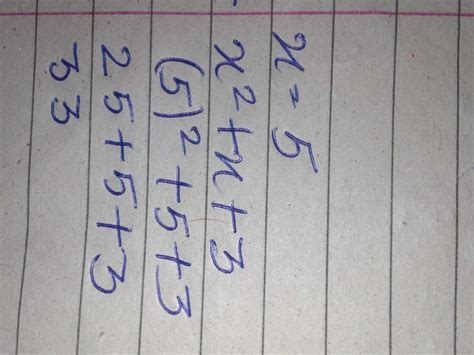 x = 5
x² + x + 3
(5)² + 5 + 3
25 + 5 + 3
33